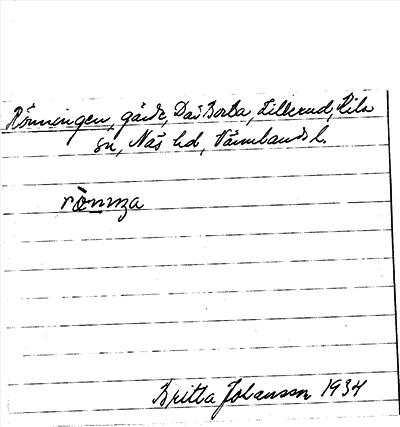 Rönningen, gärde, Lillerud, Kila
sn, Näs hd, Värmlands l.
rönnza
Britta Johansson 1934